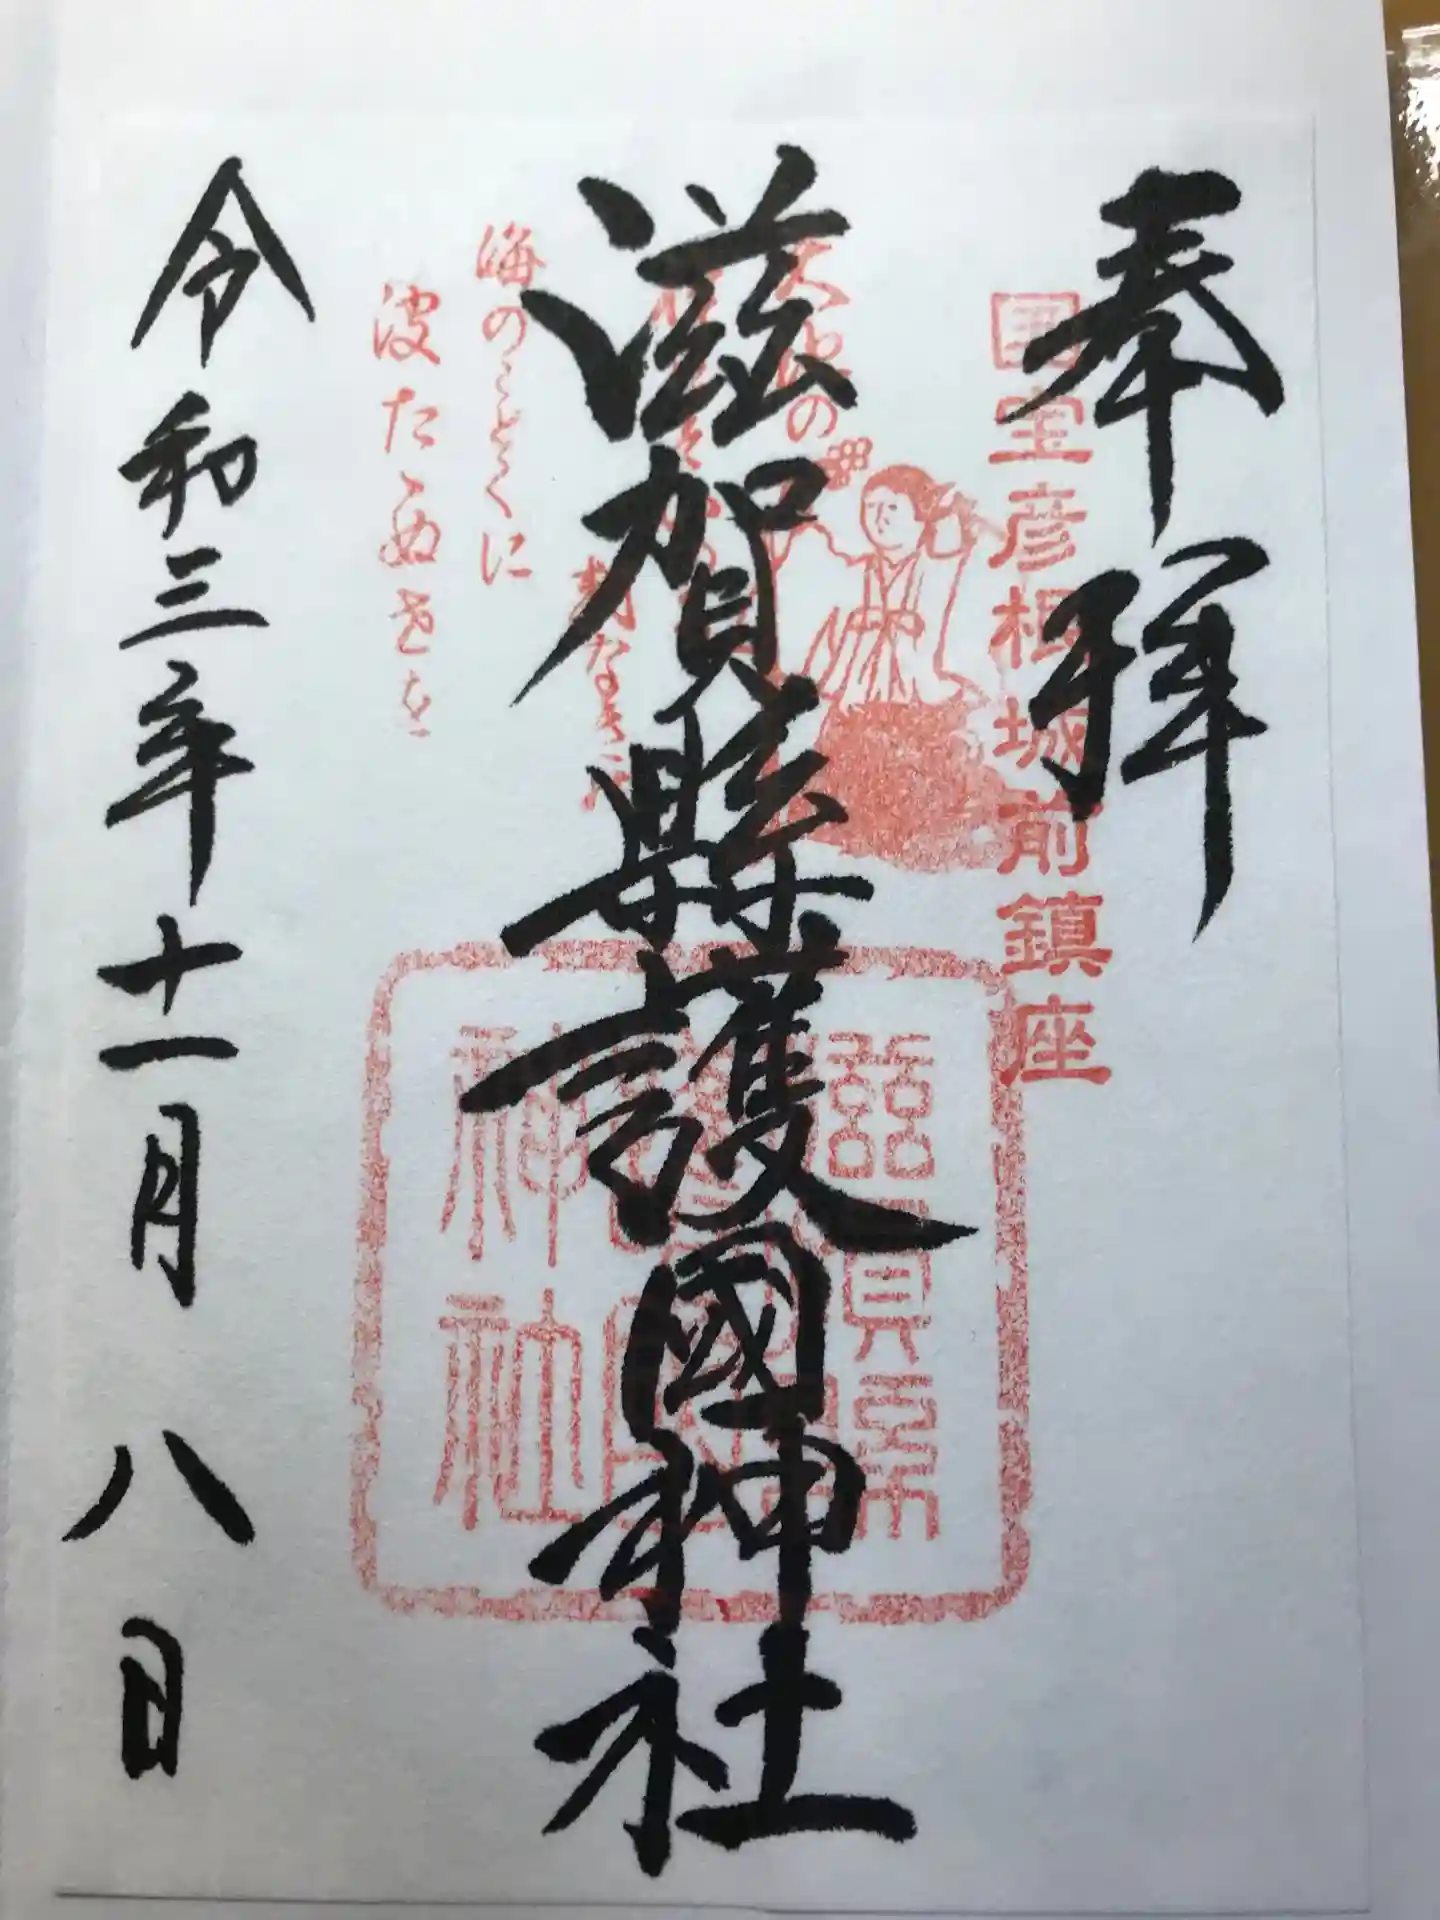 奉拝
国宝彦根城前鎮座
滋賀縣護國神社
滋賀縣
神社
海のことくに
波たゝぬせを
令和三年十一月八日